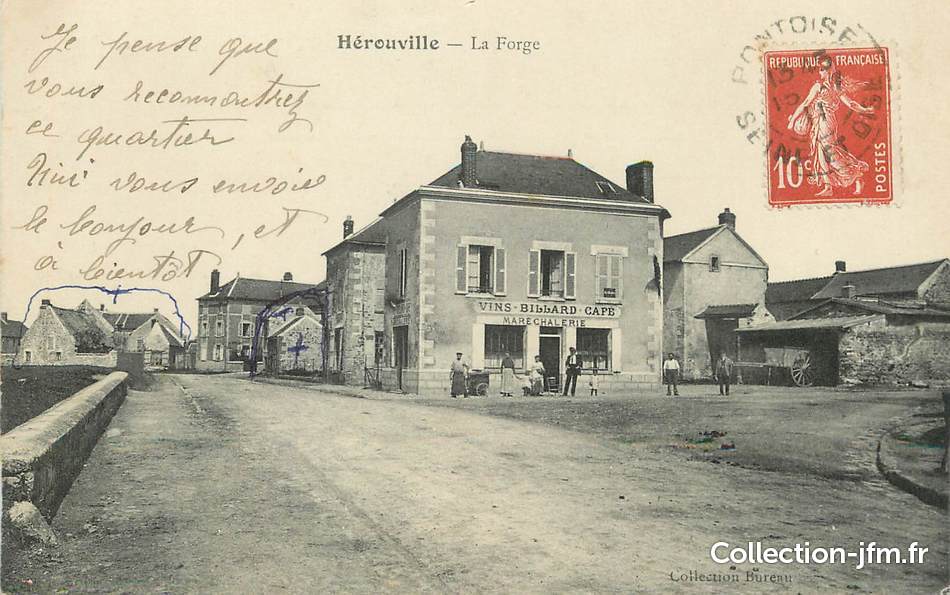 Je pense que
vous reconnaitrez
ce quartier
Nini vous envoie
le bonjour, et
à bientôt
Hérouville — La Forge
PONTOISE
SEINE-ET-OISE
RÉPUBLIQUE FRANÇAISE
10c
POSTES
VINS-BILLARD-CAFÉ
MARÉCHALERIE
Collection-jfm.fr
Collection Bureau